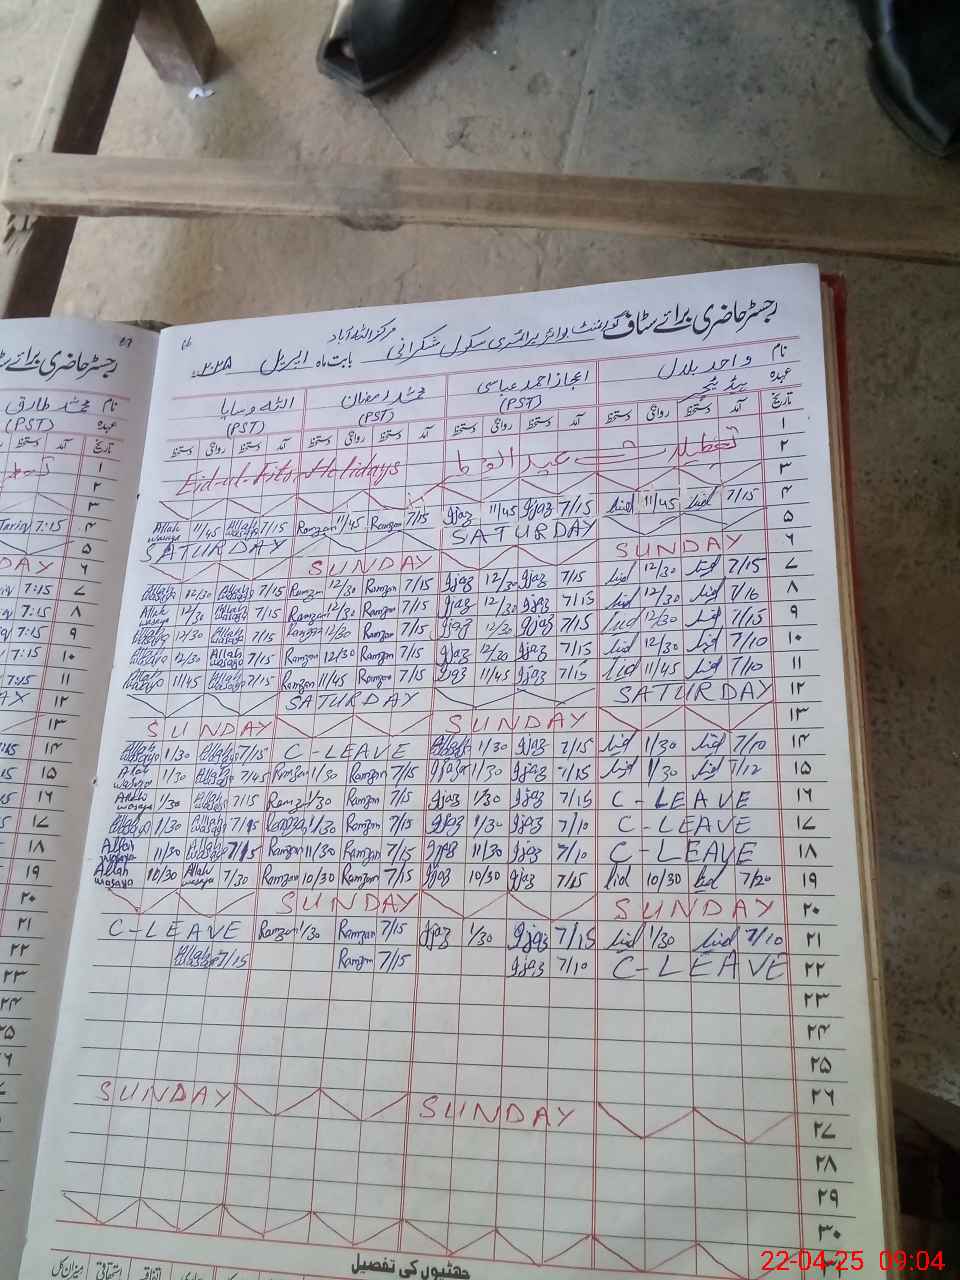 رجسٹر حاضری برائے سٹاف گورنمنٹ بوائز پرائمری سکول شکرانی مرکز اللہ آباد بابت ماہ اپریل
نام واحد بلال اعجاز احمد عباسی محمد رمضان اللہ وسایا
عہدہ (PST) (PST) (PST)
تاریخ آمد دستخط روانگی دستخط آمد دستخط روانگی دستخط آمد دستخط روانگی دستخط آمد دستخط روانگی دستخط
۱
۲ تعطیلات عید الفطر Eid-ul-Fitr Holidays
۳
۴ 7/15 lid 11/45 lid 7/15 Ijaz 11/45 Ijaz 7/15 Ramzan 11/45 Ramzan 7/15 Allah wasaya 11/45 Allah wasaya
۵ SATURDAY SATURDAY
۶ SUNDAY SUNDAY
۷ 7/15 lid 12/30 lid 7/15 Ijaz 12/30 Ijaz 7/15 Ramzan 12/30 Ramzan 7/15 Allah wasaya 12/30 Allah wasaya
۸ 7/16 lid 12/30 lid 7/15 Ijaz 12/30 Ijaz 7/15 Ramzan 12/30 Ramzan 7/15 Allah wasaya 12/30 Allah wasaya
۹ 7/15 lid 12/30 lid 7/15 Ijaz 12/30 Ijaz 7/15 Ramzan 12/30 Ramzan 7/15 Allah wasaya 12/30 Allah wasaya
۱۰ 7/10 lid 12/30 lid 7/15 Ijaz 12/30 Ijaz 7/15 Ramzan 12/30 Ramzan 7/15 Allah wasaya 12/30 Allah wasaya
۱۱ 7/10 lid 11/45 lid 7/15 Ijaz 11/45 Ijaz 7/15 Ramzan 11/45 Ramzan 7/15 Allah wasaya 11/45 Allah wasaya
۱۲ SATURDAY SATURDAY
۱۳ SUNDAY SUNDAY
۱۴ 7/10 lid 1/30 lid 7/15 Ijaz 1/30 C-LEAVE 7/15 Allah wasaya 1/30 Allah wasaya
۱۵ 7/12 lid 1/30 lid 7/15 Ijaz 1/30 Ijaz 7/15 Ramzan 1/30 Ramzan 7/15 Allah wasaya 1/30 Allah wasaya
۱۶ C-LEAVE 7/15 Ijaz 1/30 Ijaz 7/15 Ramzan 1/30 Ramzan 7/15 Allah wasaya 1/30 Allah wasaya
۱۷ C-LEAVE 7/10 Ijaz 1/30 Ijaz 7/15 Ramzan 1/30 Ramzan 7/15 Allah wasaya 1/30 Allah wasaya
۱۸ C-LEAVE 7/10 Ijaz 11/30 Ijaz 7/15 Ramzan 11/30 Ramzan 7/15 Allah wasaya 11/30 Allah wasaya
۱۹ 7/20 lid 10/30 lid 7/15 Ijaz 10/30 Ijaz 7/15 Ramzan 10/30 Ramzan 7/30 Allah wasaya 10/30 Allah wasaya
۲۰ SUNDAY SUNDAY
۲۱ 7/10 lid 1/30 lid 7/15 Ijaz 1/30 Ijaz 7/15 Ramzan 1/30 Ramzan C-LEAVE
۲۲ C-LEAVE 7/10 Ijaz 7/15 Ramzan 7/15 Allah wasaya
۲۳
۲۴
۲۵
۲۶
۲۷ SUNDAY SUNDAY
۲۸
۲۹
۳۰
چھٹیوں کی تفصیل
میزان کل استحقاقی اتفاقیہ
رجسٹر حاضری برائے
نام محمد طارق
عہدہ (PST)
تاریخ آمد دستخط
۱
۲
۳
۴ 7:15
۵
۶
۷ 7:15
۸ 7:15
۹ 7:15
۱۰ 7:15
۱۱ 7:15
۱۲
۱۳
۱۴
۱۵
۱۶
۱۷
۱۸
۱۹
۲۰
۲۱
۲۲
۲۳
۲۴
22-04-25 09:04